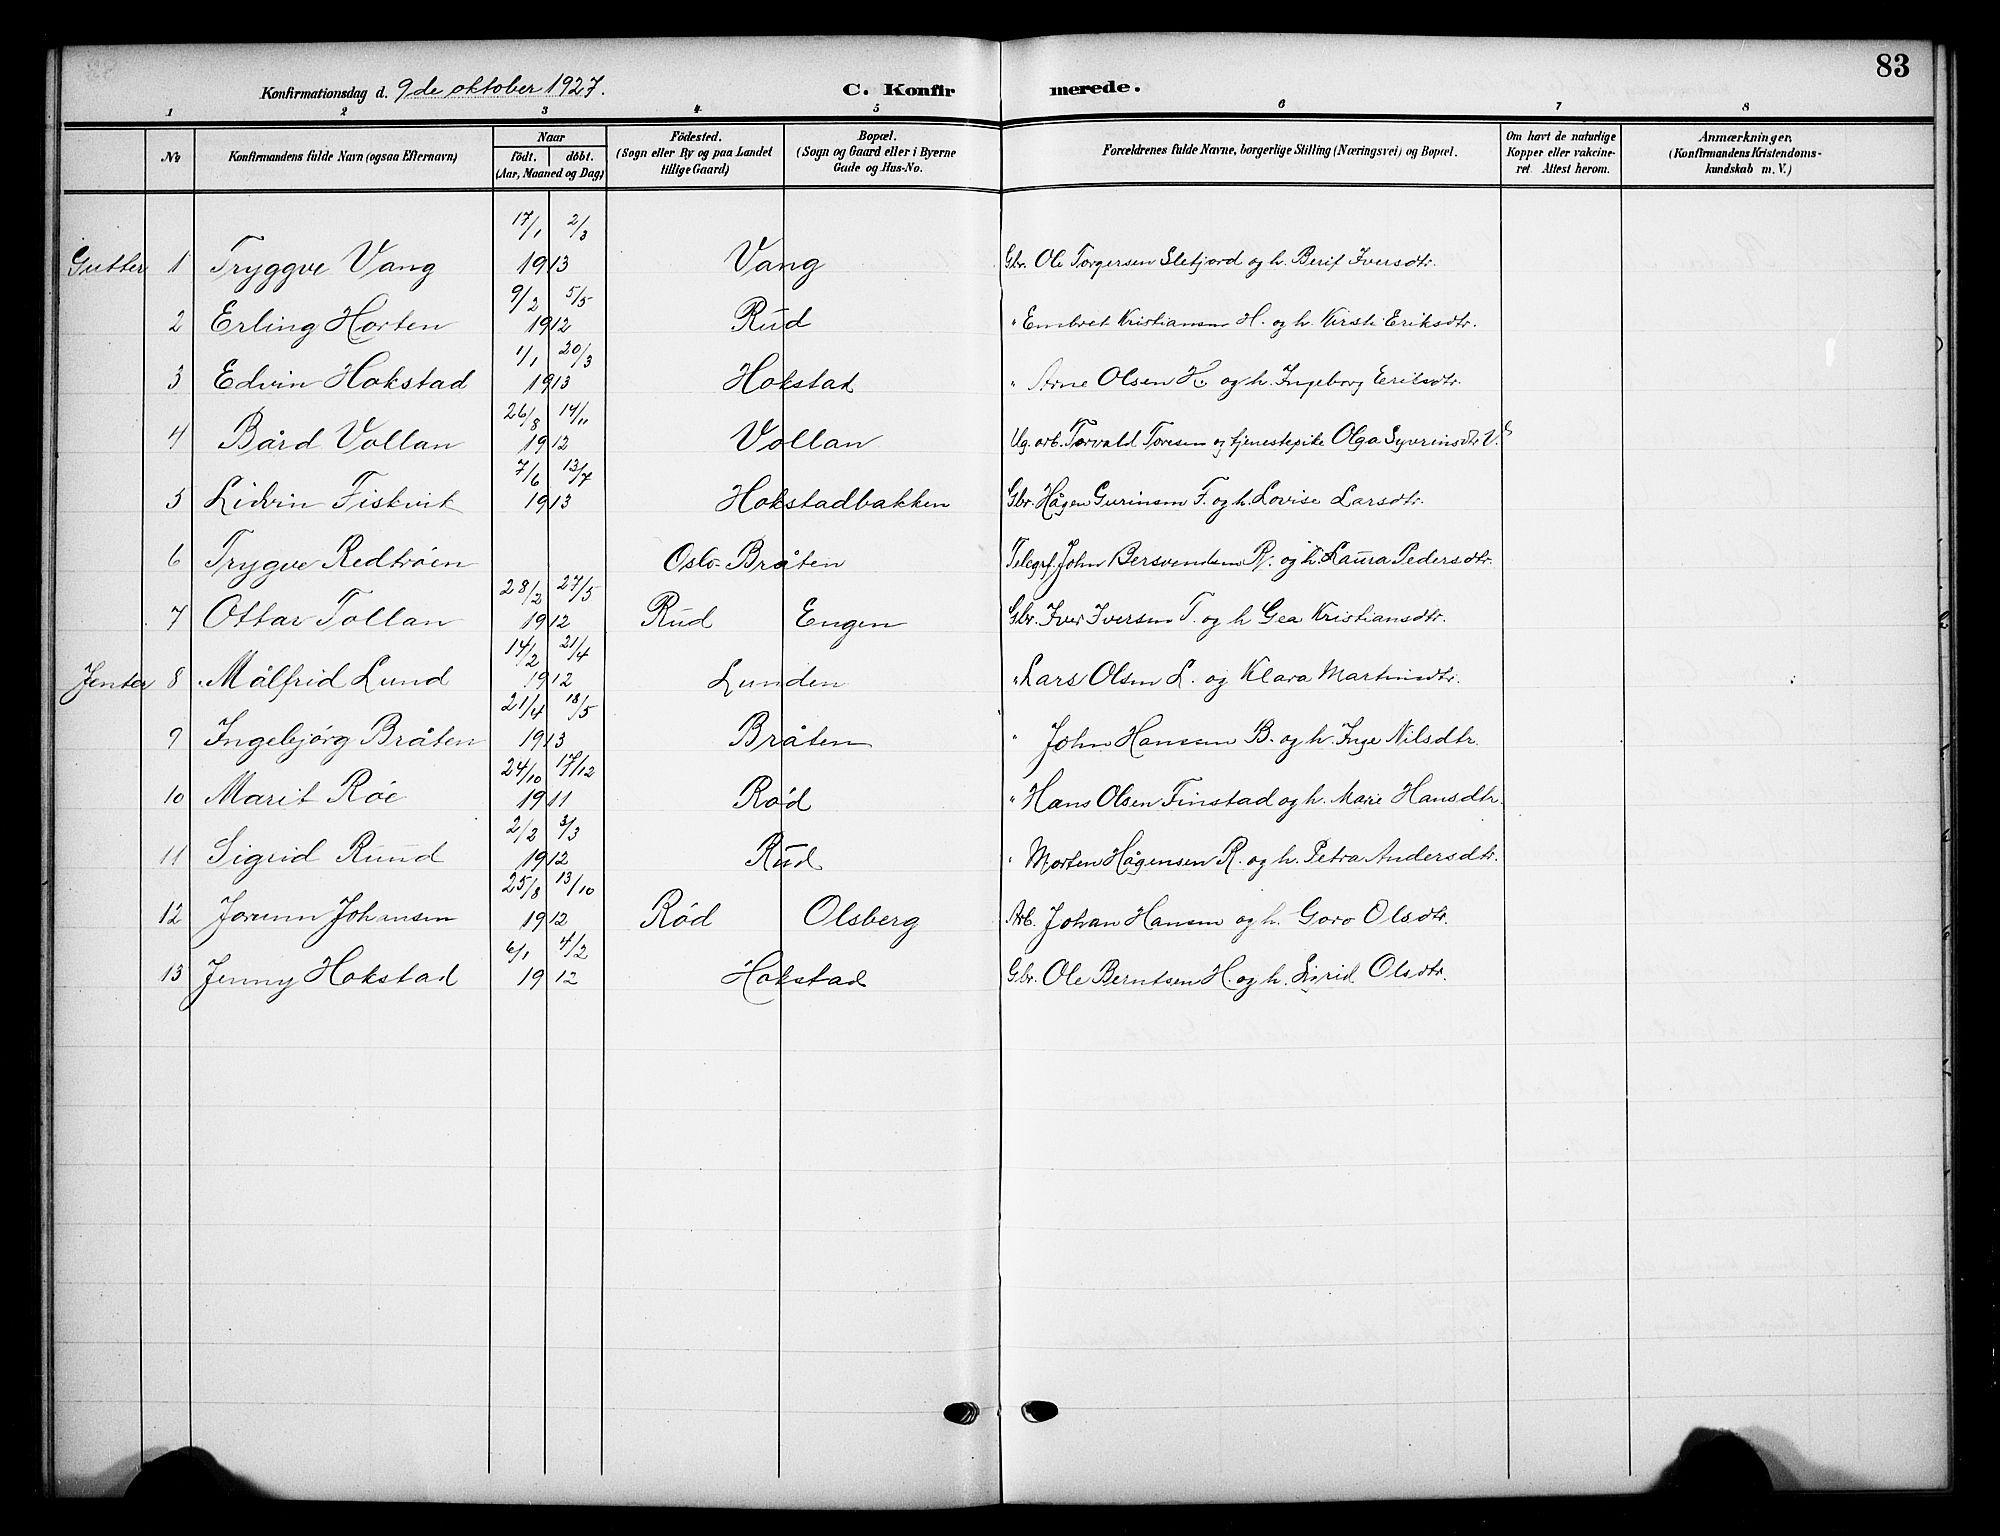 83
Konfirmationsdag d. 9de oktober 1927. C. Konfirmerede.
1 2 3 4 5 6 7 8
No Konfirmandens fulde Navn (ogsaa Efternavn) Naar født. døbt. (Aar, Maaned og Dag) Fødested. (Sogn eller By og paa Landet tillige Gaard) Bopæl. (Sogn og Gaard eller i Byerne Gade og Hus-No. Forældrenes fulde Navne, borgerlige Stilling (Næringsvei) og Bopæl. Om havt de naturlige Kopper eller vakcineret Attest herom. Anmærkninger, (Konfirmandens Kristendomskundskab m. V.)
17/1 2/3
Gutter 1 Tryggve Vang 1913 Vang Gbr. Ole Torgersen Sletjord og h. Berit Iversdtr.
9/2 5/5
2 Erling Horten 1912 Rud " Embret Kristiansen H. og h. Kirsti Eriksdtr.
1/1 20/3
3 Edvin Hokstad 1913 Hokstad " Arne Olsen H. og h. Ingeborg Eriksdtr.
26/8 14/11
4 Bård Vollan 1912 Vollan Ug. arb. Torvald Toresen og tjenestepike Olga Syverinsdtr V.
7/6 13/7
5 Lidvin Fiskvik 1913 Hokstadbakken Gbr. Hågen Gurinsen F. og h. Lovise Larsdtr.
6 Trygve Redtröen Oslo- Bråten Telegrf. John Bersvendsen R. og h. Laura Pedersdtr.
28/2 27/5
7 Ottar Tollan 1912 Rud Engen Gbr. Iver Iversen T. og h Gea Kristiansdtr.
14/2 21/4
Jenter 8 Målfrid Lund 1912 Lunden " Lars Olsen L. og Klara Martinsdtr.
21/4 18/5
9 Ingebjørg Bråten 1913 Bråten " John Hansen B. og h. Inge Nilsdtr.
24/10 17/12
10 Marit Röe 1911 Rød " Hans Olsen Finstad og h. Marie Hansdtr.
2/2 3/3
11 Sigrid Ruud 1912 Rud " Morten Hågensen R. og h. Petra Andersdtr.
25/8 13/10
12 Jorunn Johansen 1912 Rød Olsberg Arb. Johan Hansen og h. Goro Olsdtr.
6/1 4/2
13 Jenny Hokstad 1912 Hokstad Gbr. Ole Berntsen H. og h. Sigrid Olsdtr.